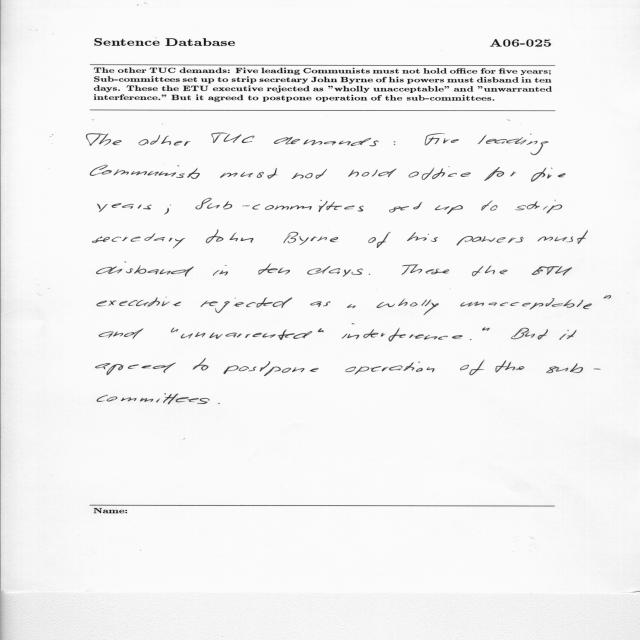 Sentence Database A06-025
The other TUC demands: Five leading Communists must not hold office for five years;
Sub-committees set up to strip secretary John Byrne of his powers must disband in ten
days. These the ETU executive rejected as "wholly unacceptable" and "unwarranted
interference." But it agreed to postpone operation of the sub-committees.
The other TUC demands: Five leading
Communists must not hold office for five
years; Sub-committees set up to strip
secretary John Byrne of his powers must
disband in ten days. These the ETU
executive rejected as „wholly unacceptable"
and "unwarrented" interference." But it
agreed to postpone operation of the sub-
committees.
Name: